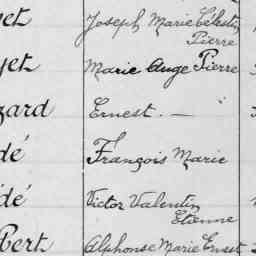 yet Joseph Marie Célestin
Pierre
yet Marie Ange Pierre
zard Ernest. —
dé François Marie
dé Victor Valentin
Etienne
bert Alphonse Marie Ernest